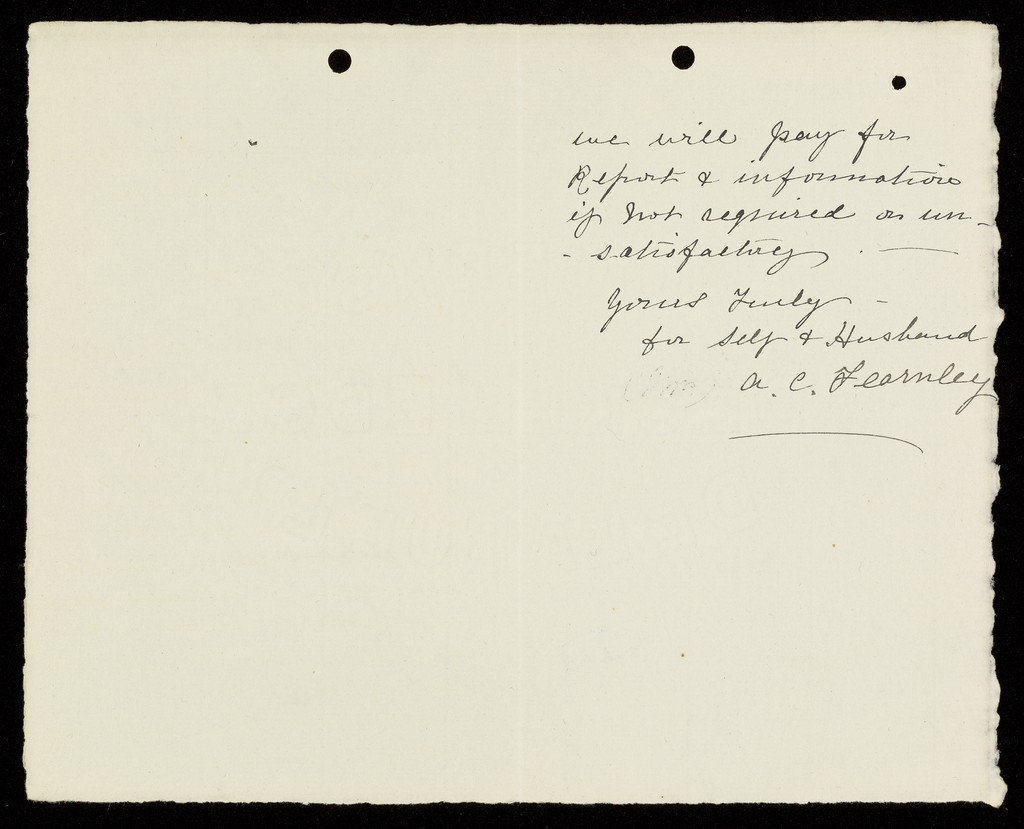 we will pay for
Report & information
if not required or un-
- satisfactory. —
Yours Truly -
for self & Husband
A. C. Fearnley